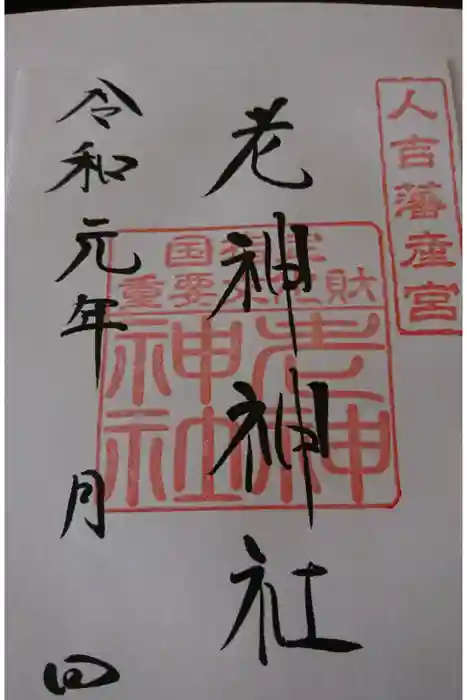 人吉藩産宮
老神神社
国指定
重要文化財
老神
神社
令和元年 月 日